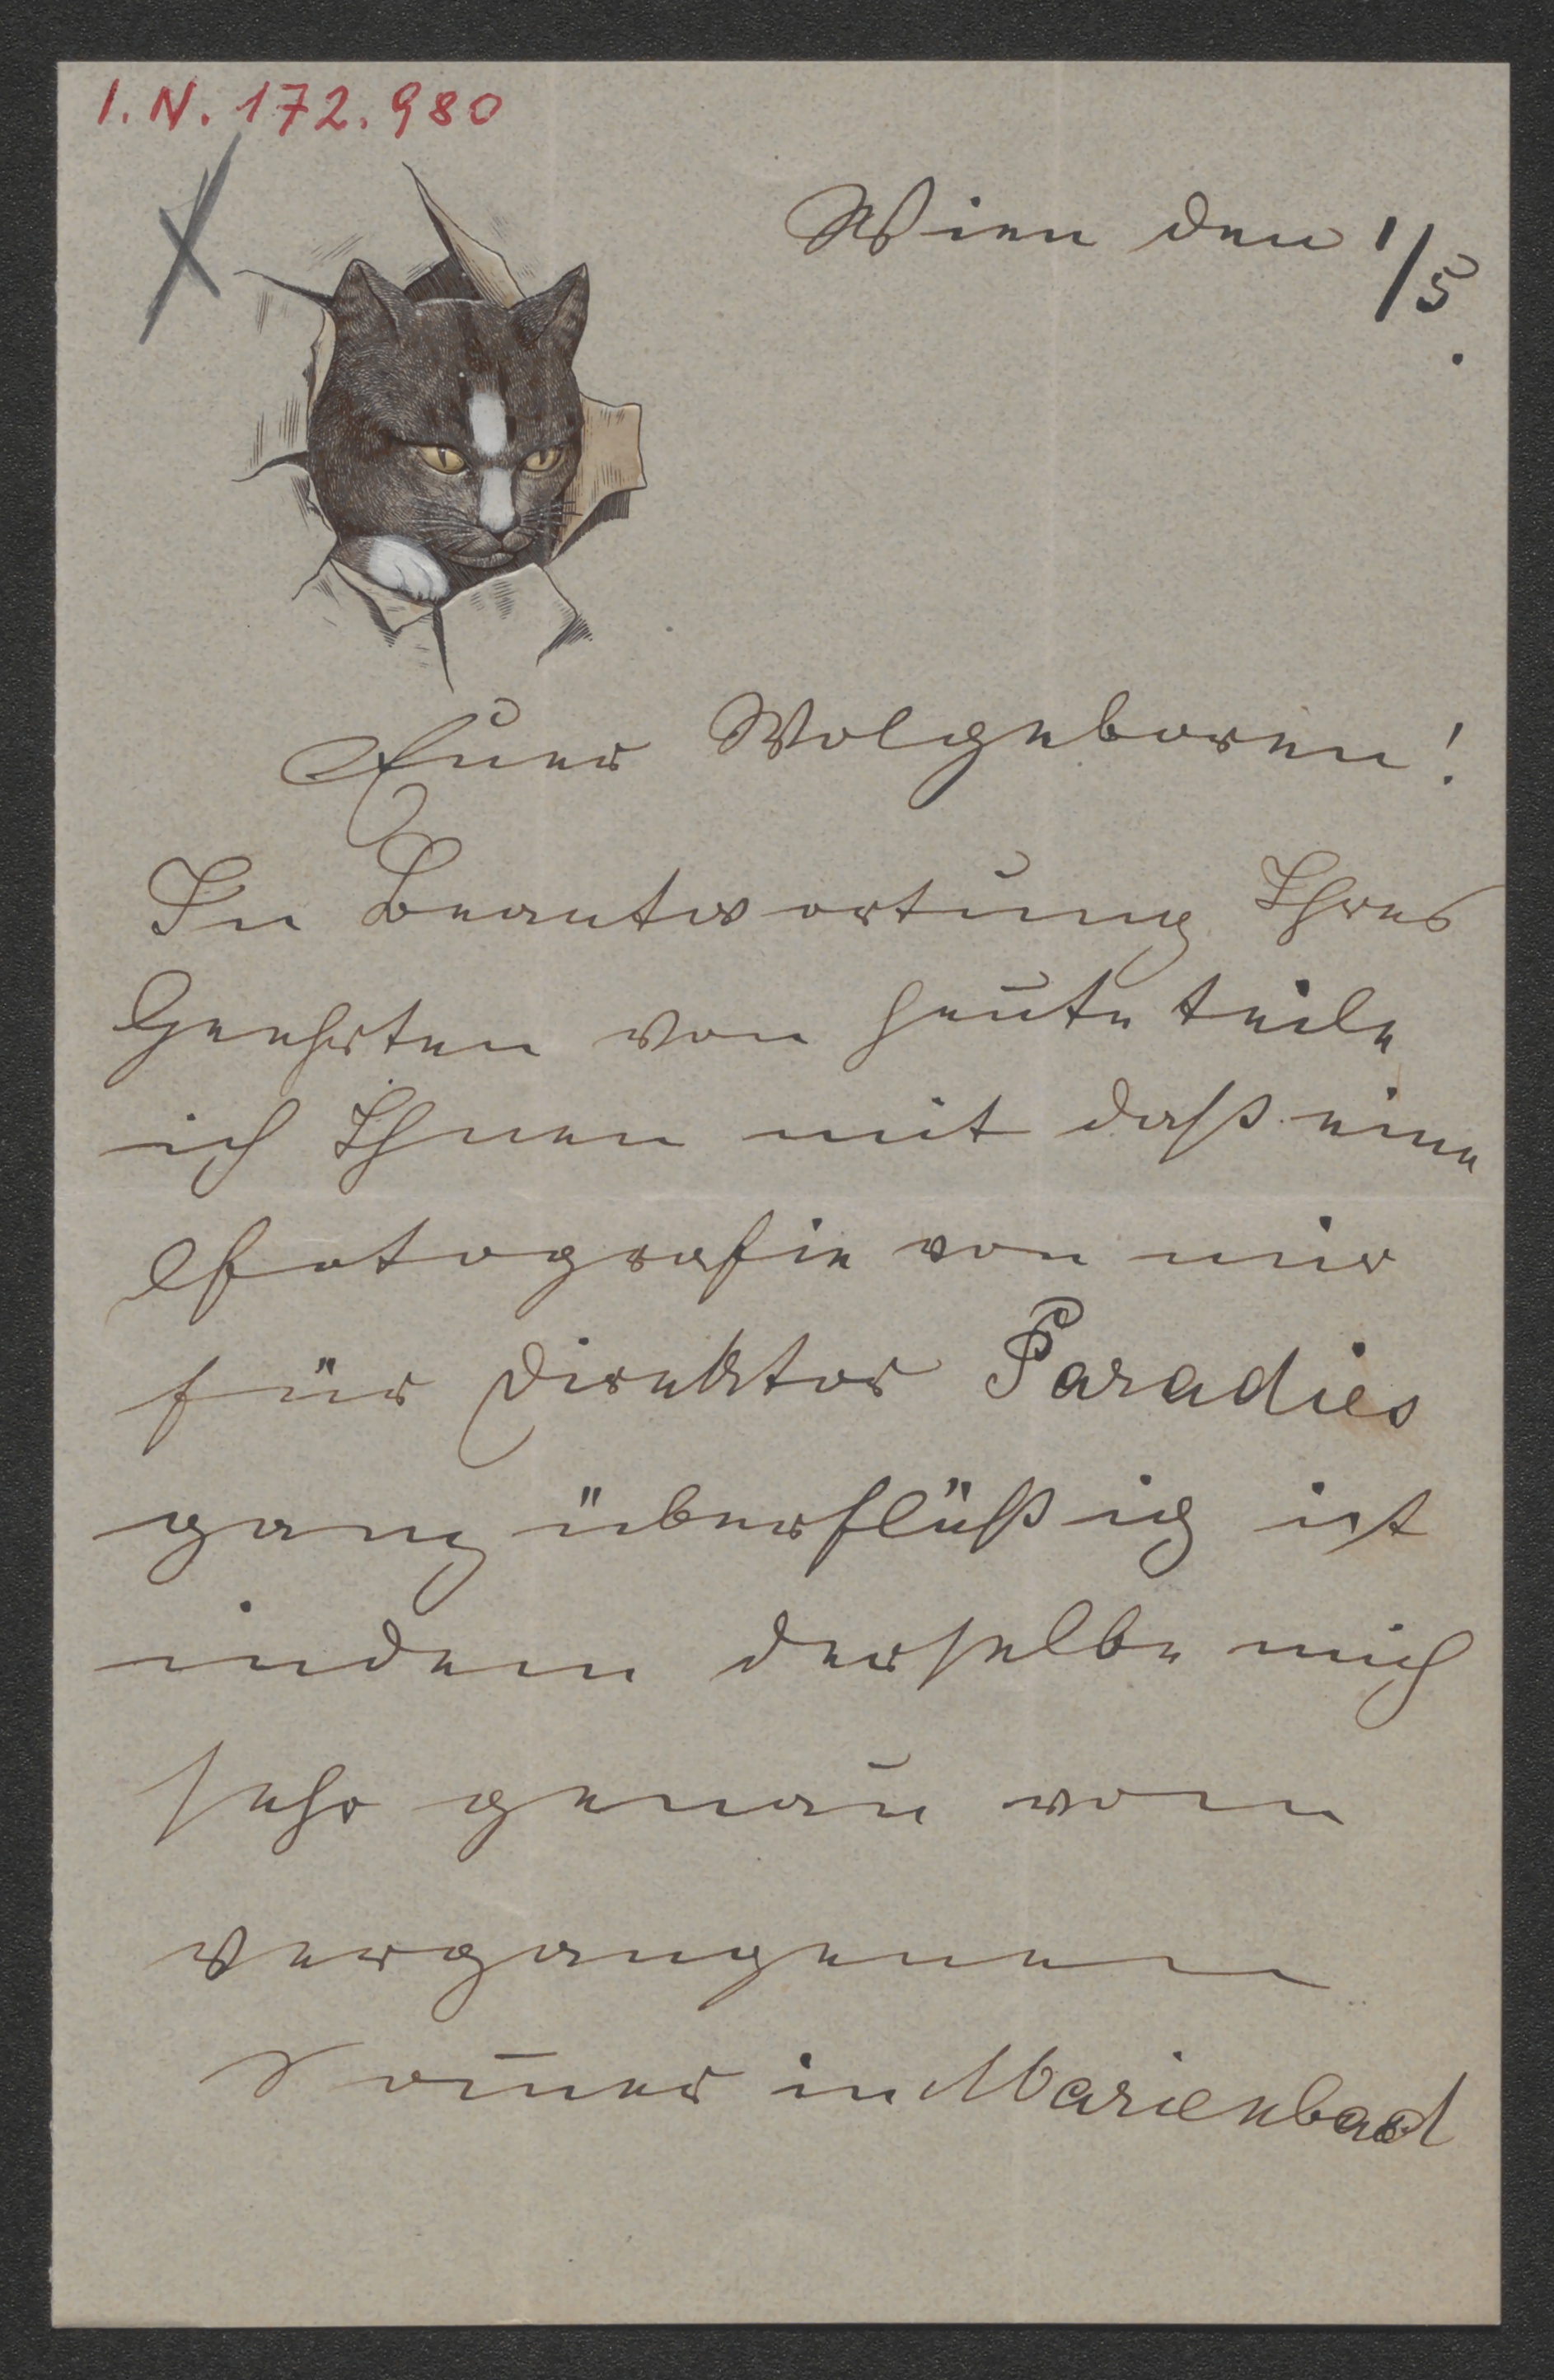 I.N. 172.980
Wien den 1/5.
Euer Wolgeboren!
In Beantwortung Ihres
Geehrten von heute teile
ich Ihnen mit daß eine
Photografie von mir
für Direktor Paradies
ganz überflüßig ist
indem derselbe mich
sehr genau vom
vergangenen
Som̄er in Marienbad